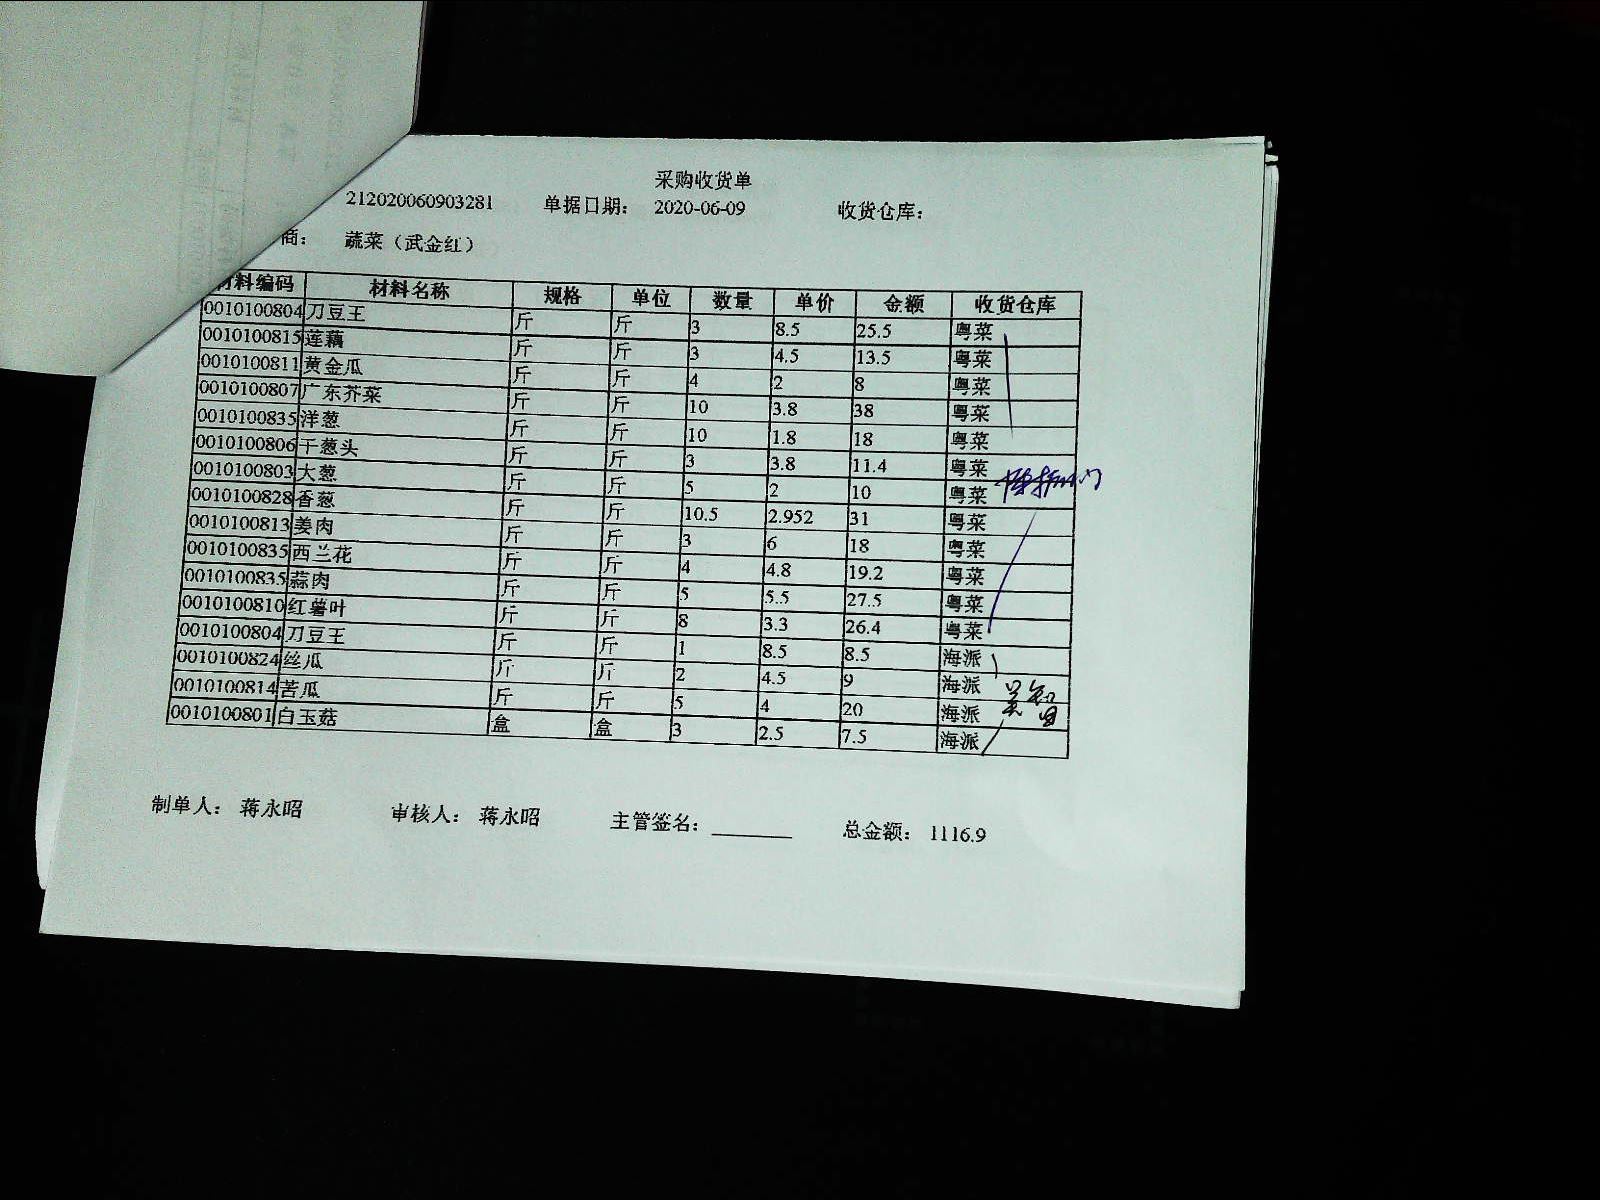 采购收货单
212020060903281 单据日期： 2020-06-09 收货仓库：
商： 蔬菜（武金红）
材料编码 材料名称 规格 单位 数量 单价 金额 收货仓库
0010100804 刀豆王 斤 斤 3 8.5 25.5 粤菜
0010100815 莲藕 斤 斤 3 4.5 13.5 粤菜
0010100811 黄金瓜 斤 斤 4 2 8 粤菜
0010100807 广东芥菜 斤 斤 10 3.8 38 粤菜
0010100835 洋葱 斤 斤 10 1.8 18 粤菜
0010100806 干葱头 斤 斤 3 3.8 11.4 粤菜
0010100803 大葱 斤 斤 5 2 10 粤菜
0010100828 香葱 斤 斤 10.5 2.952 31 粤菜
0010100813 姜肉 斤 斤 3 6 18 粤菜
0010100835 西兰花 斤 斤 4 4.8 19.2 粤菜
0010100835 蒜肉 斤 斤 5 5.5 27.5 粤菜
0010100810 红薯叶 斤 斤 8 3.3 26.4 粤菜
0010100804 刀豆王 斤 斤 1 8.5 8.5 海派
0010100824 丝瓜 斤 斤 2 4.5 9 海派
0010100814 苦瓜 斤 斤 5 4 20 海派
0010100801 白玉菇 盒 盒 3 2.5 7.5 海派
制单人： 蒋永昭 审核人： 蒋永昭 主管签名： 总金额： 1116.9